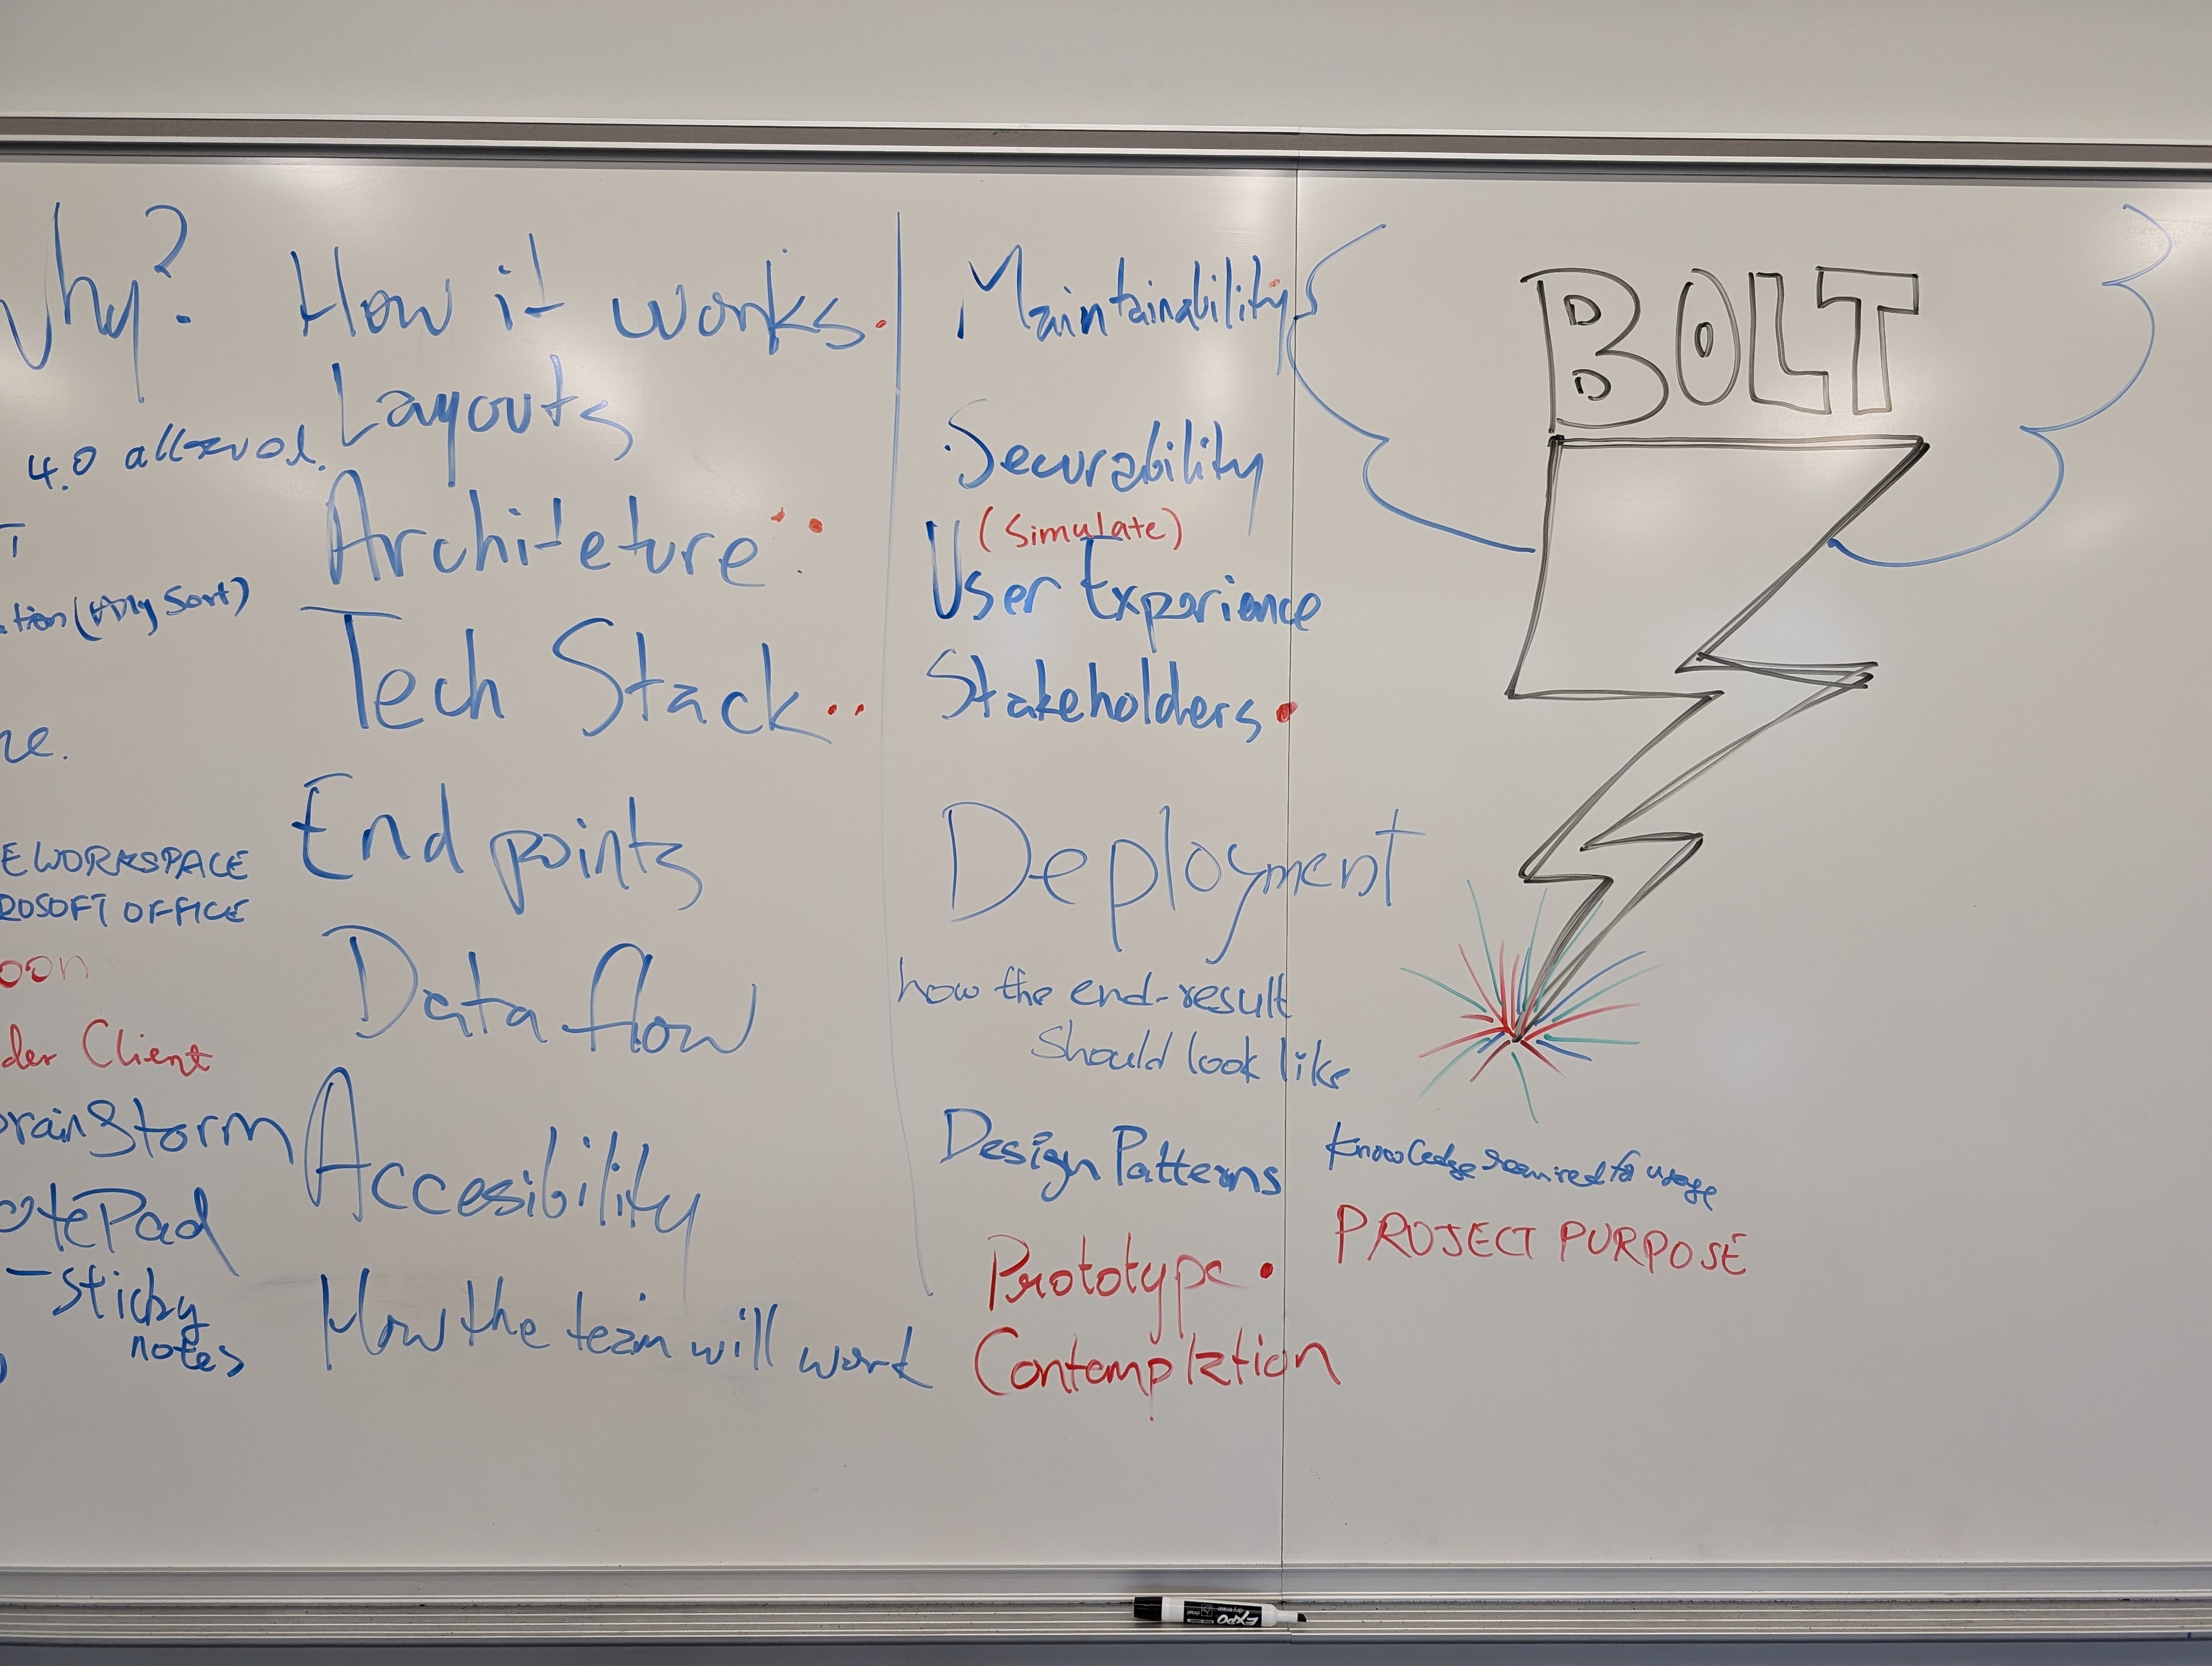 Why?
4.0
(tiny sort)
WORKSPACE
OFFICE
Client
brainstorm
NotePad
- sticky
notes
How it works.
Layouts
Architeture
Tech Stack
End points
Data flow
Accesibility
How the team will work
Maintainability
Securability
(simulate)
User Experience
Stakeholders
Deployment
how the end-result
should look like
Design Patterns
Prototype
Contemplation
BOLT
Knowledge required for usage
PROJECT PURPOSE
EXPO